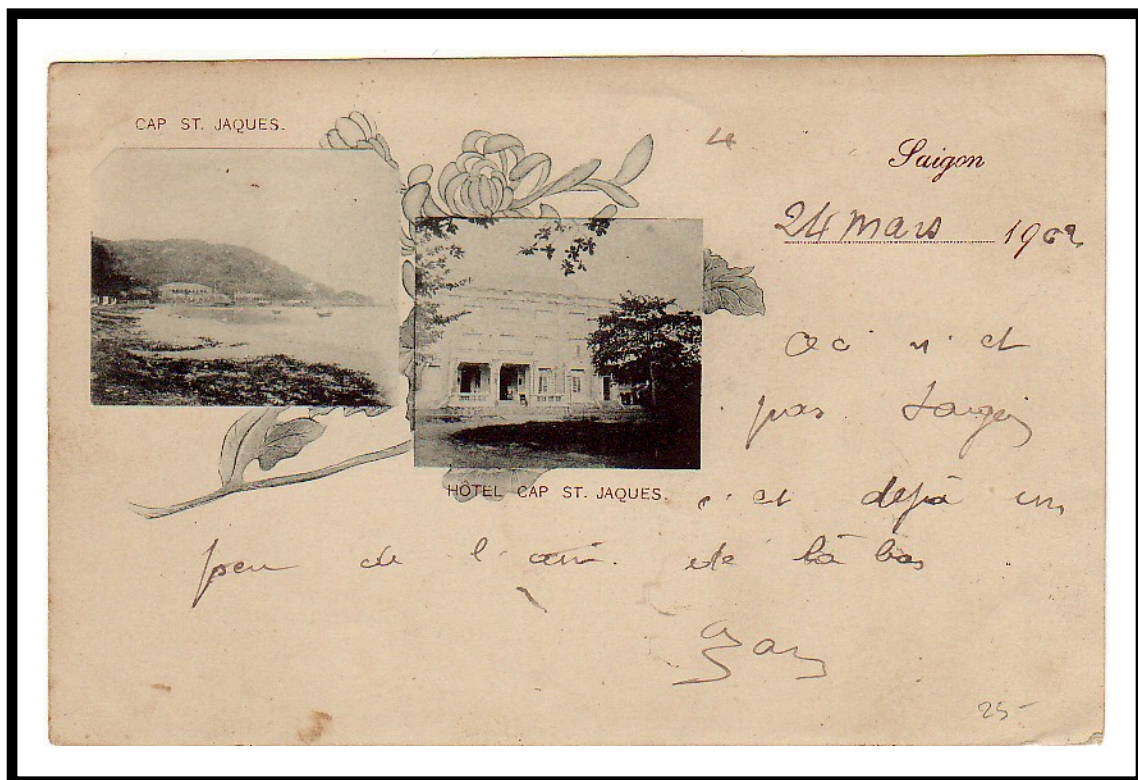 CAP ST. JAQUES.
4
Saigon
24 mars 1902
n'est
pas Saigon
HÔTEL CAP ST. JAQUES.
c'est dejà un
peu de l'air de là bas
25-